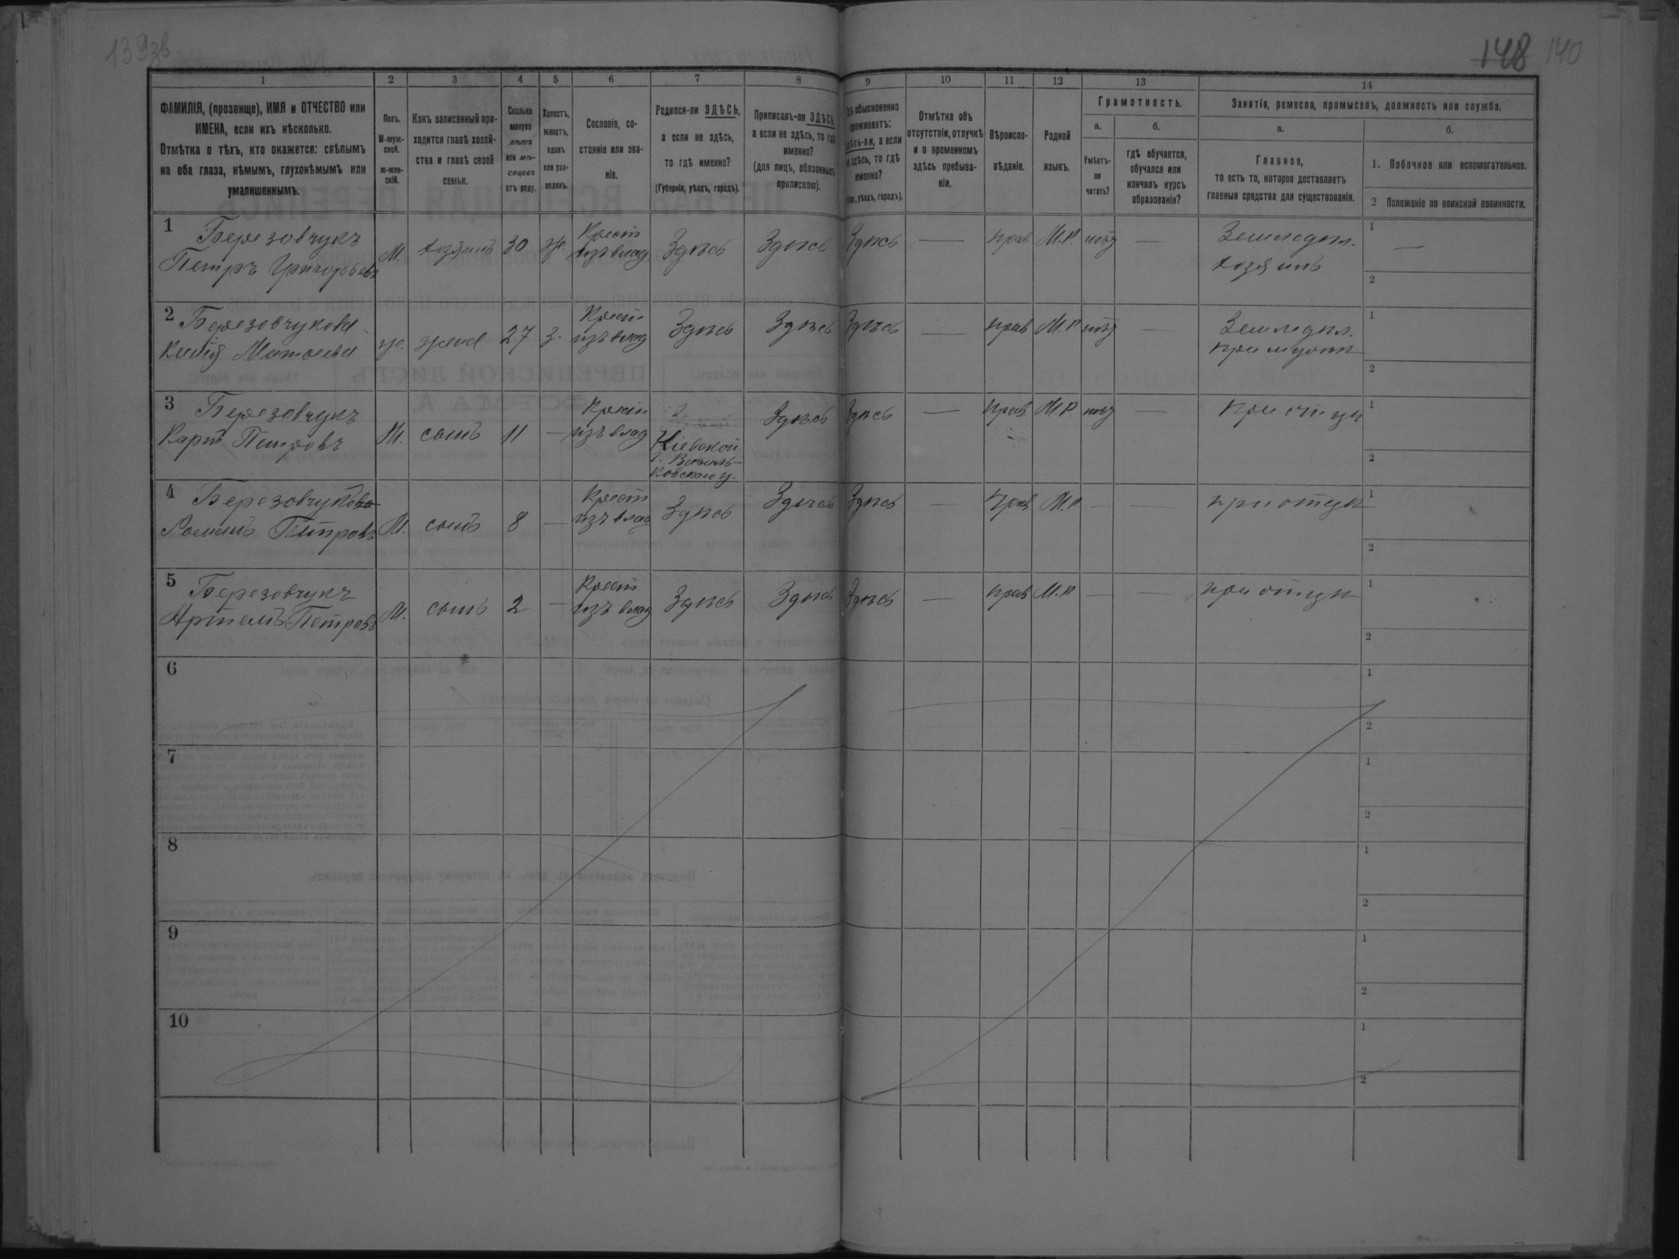 139зв
148 140
1 2 3 4 5 6 7 8 9 10 11 12 13 14
ФАМИЛІЯ, (прозвище), ИМЯ и ОТЧЕСТВО или
ИМЕНА, если ихъ нѣсколько.
Отмѣтка о тѣхъ, кто окажется: слѣпымъ
на оба глаза, нѣмымъ, глухонѣмымъ или
умалишеннымъ.
Полъ.
М-муж-
ской.
ж-жен-
скій.
Какъ записанный при-
ходится главѣ хозяй-
ства и главѣ своей
семьи.
Сколько
минуло
лѣтъ
или мѣ-
сяцевъ
отъ роду.
Холостъ,
женатъ,
вдовъ
или раз-
веденъ.
Сословіе, со-
стояніе или зва-
ніе.
Родился-ли ЗДѢСЬ,
а если не здѣсь,
то гдѣ именно?
(Губернія, уѣздъ, городъ).
Приписанъ-ли ЗДѢСЬ,
а если не здѣсь, то гдѣ
именно?
(для лицъ, обязанныхъ
припискою).
обыкновенно
проживаетъ:
а если
здѣсь, то гдѣ
именно?
уѣздъ, городъ).
Отмѣтка объ
отсутствіи, отлучкѣ
и о временномъ
здѣсь пребыва-
ніи.
Вѣроиспо-
вѣданіе.
Родной
языкъ.
Грамотность.
а.
Умѣетъ-
ли
читать?
б.
гдѣ обучается,
обучался или
кончилъ курсъ
образованія?
Занятіе, ремесло, промыселъ, должность или служба.
а.
Главное,
то есть то, которое доставляетъ
главныя средства для существованія.
б.
1. Побочное или вспомогательное.
2 Положеніе по воинской повинности.
1 Березовчукъ
Петръ Григорьевъ М. хозяинъ 30 ж. Крест изъ влад Здѣсь Здѣсь Здѣсь — прав М.Р. нѣтъ — Земледѣл.
хозяинъ
1 —
2
2 Березовчукова
Матвеева ж. жена 27 з. Крест изъ влад Здѣсь Здѣсь Здѣсь — прав М.Р нѣтъ — Земледѣл.
при мужѣ
1
2
3 Березовчукъ
Карпъ Петровъ М. сынъ 11 — Крест изъ влад
Кіевской
г. Василь-
ковскаго у.
Здѣсь Здѣсь — прав М.Р нѣтъ — при отцѣ
1
2
4 Березовчукъ
Романъ Петровъ М. сынъ 8 — Крест изъ влад Здѣсь Здѣсь Здѣсь — прав М.Р — — при отцѣ
1
2
5 Березовчукъ
Артемъ Петровъ М. сынъ 2 — Крест изъ влад Здѣсь Здѣсь Здѣсь — прав М.Р — — при отцѣ
1
2
6
1
2
7
1
2
8
1
2
9
1
2
10
1
2